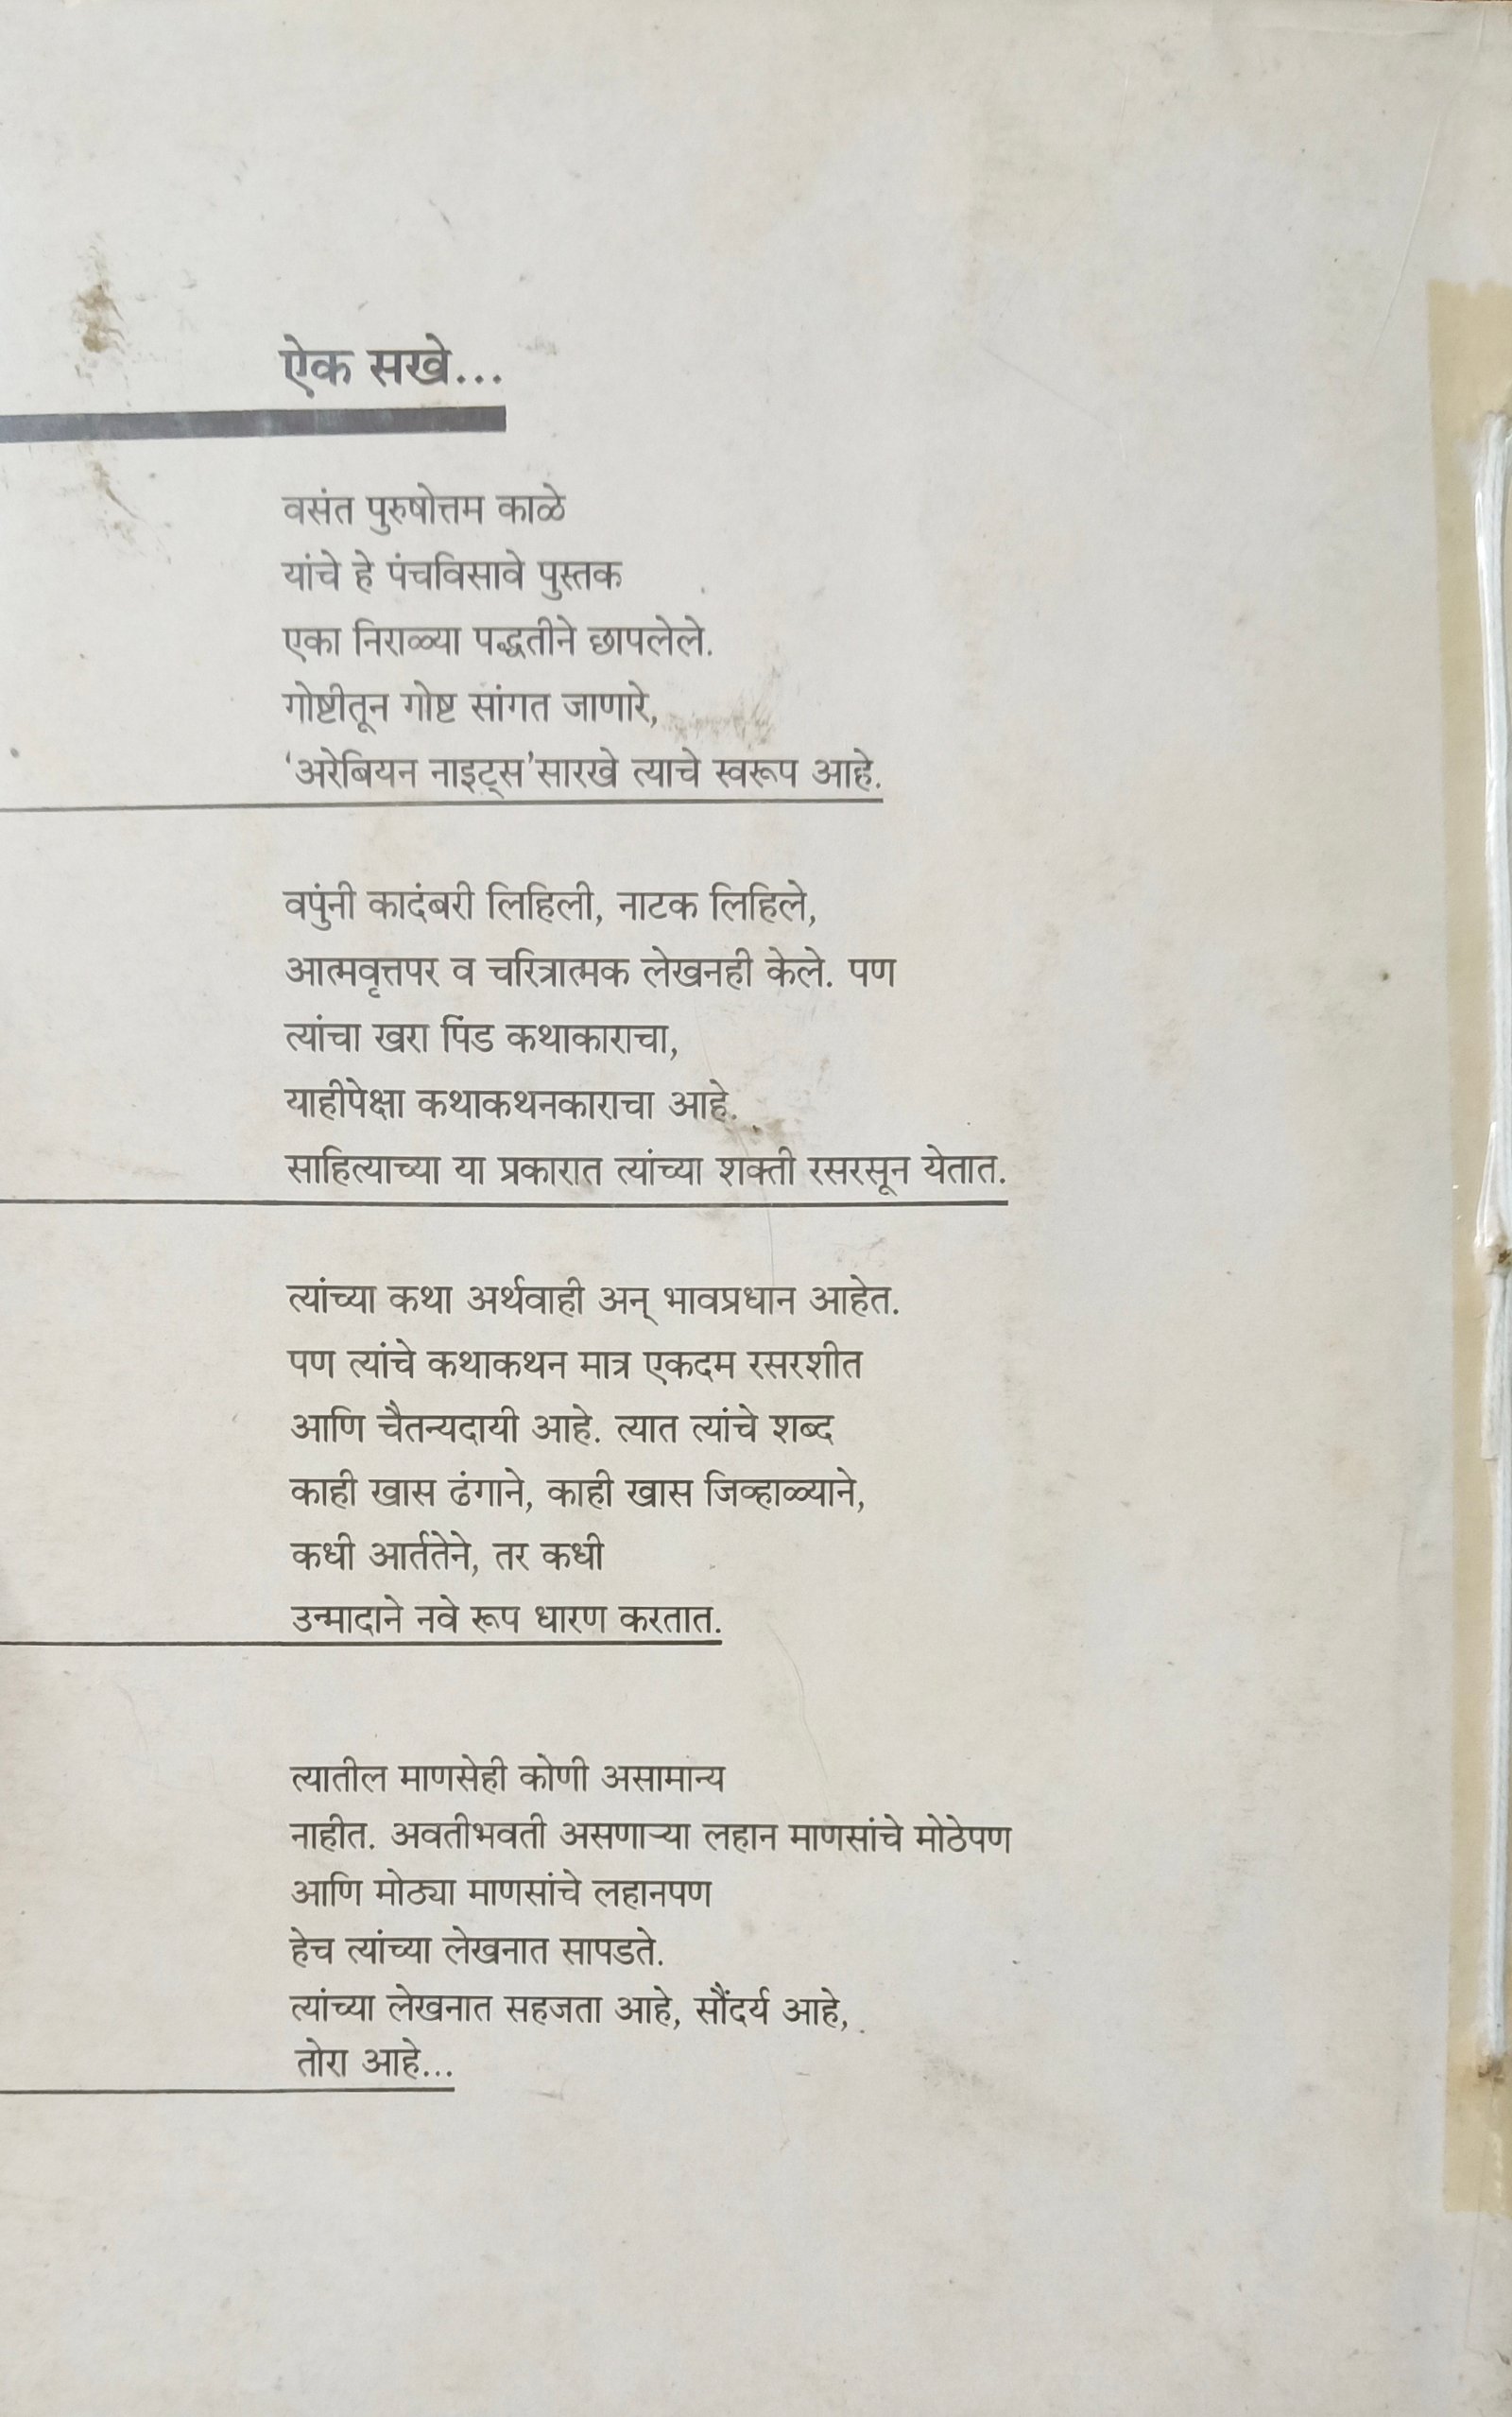 ऐक सखे...
वसंत पुरुषोत्तम काळे
यांचे हे पंचविसावे पुस्तक
एका निराळ्या पद्धतीने छापलेले.
गोष्टीतून गोष्ट सांगत जाणारे,
‘अरेबियन नाइट्स’सारखे त्याचे स्वरूप आहे.
वपुंनी कादंबरी लिहिली, नाटक लिहिले,
आत्मवृत्तपर व चरित्रात्मक लेखनही केले. पण
त्यांचा खरा पिंड कथाकाराचा,
याहीपेक्षा कथाकथनकाराचा आहे.
साहित्याच्या या प्रकारात त्यांच्या शक्ती रसरसून येतात.
त्यांच्या कथा अर्थवाही अन् भावप्रधान आहेत.
पण त्यांचे कथाकथन मात्र एकदम रसरशीत
आणि चैतन्यदायी आहे. त्यात त्यांचे शब्द
काही खास ढंगाने, काही खास जिव्हाळ्याने,
कधी आर्ततेने, तर कधी
उन्मादाने नवे रूप धारण करतात.
त्यातील माणसेही कोणी असामान्य
नाहीत. अवतीभवती असणाऱ्या लहान माणसांचे मोठेपण
आणि मोठ्या माणसांचे लहानपण
हेच त्यांच्या लेखनात सापडते.
त्यांच्या लेखनात सहजता आहे, सौंदर्य आहे,
तोरा आहे...